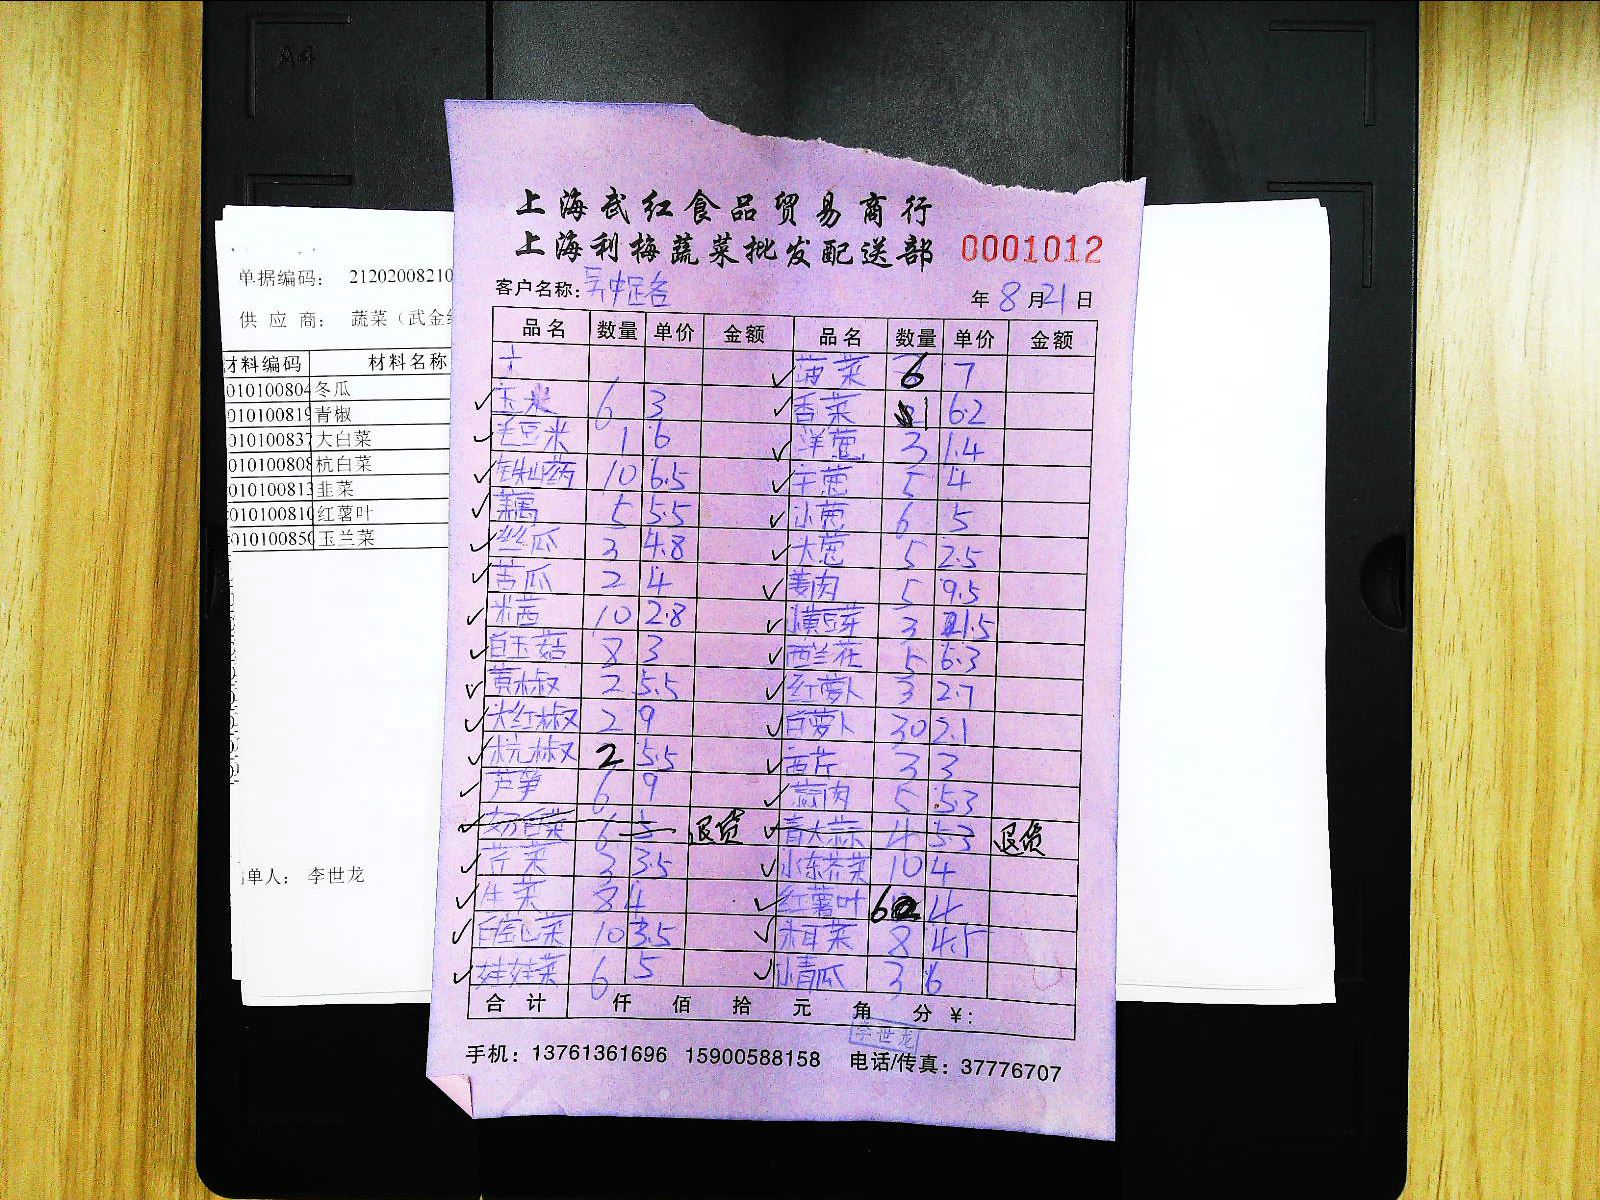 A4
单据编码： 21202008210
供 应 商： 蔬菜（武金
材料编码 材料名称
010100804 冬瓜
010100819 青椒
010100837 大白菜
010100808 杭白菜
010100813 韭菜
010100810 红薯叶
010100850 玉兰菜
单人： 李世龙
上海武红食品贸易商行
上海利梅蔬菜批发配送部 0001012
客户名称： 年 8 月 21 日
品名 数量 单价 金额 品名 数量 单价 金额
菠菜 6 7
玉米 6 3 香菜 1 6.2
毛豆米 1 6 洋葱 3 1.4
铁山药 10 6.5 5 4
藕 5 5.5 小葱 6 5
丝瓜 3 4.8 大葱 5 2.5
苦瓜 2 4 姜肉 5 9.5
米茜 10 2.8 黄豆芽 3 1.5
白玉菇 8 3 西兰花 5 6.3
黄椒 2 5.5 红萝卜 3 2.7
大红椒 2 9 白萝卜 30 2.1
杭椒 2 5.5 西芹 3 3
芦笋 6 9 蒜肉 5 5.3
奶白菜 6 5 退货 青大蒜 4 5.3 退货
芹菜 3 3.5 小东芥菜 10 4
生菜 8 4 红薯叶 6 4
包心菜 10 3.5 木耳菜 8 4.5
娃娃菜 6 5 小青瓜 3 6
合 计 仟 佰 拾 元 角 分 ￥:
李世龙
手机：13761361696 15900588158 电话/传真：37776707